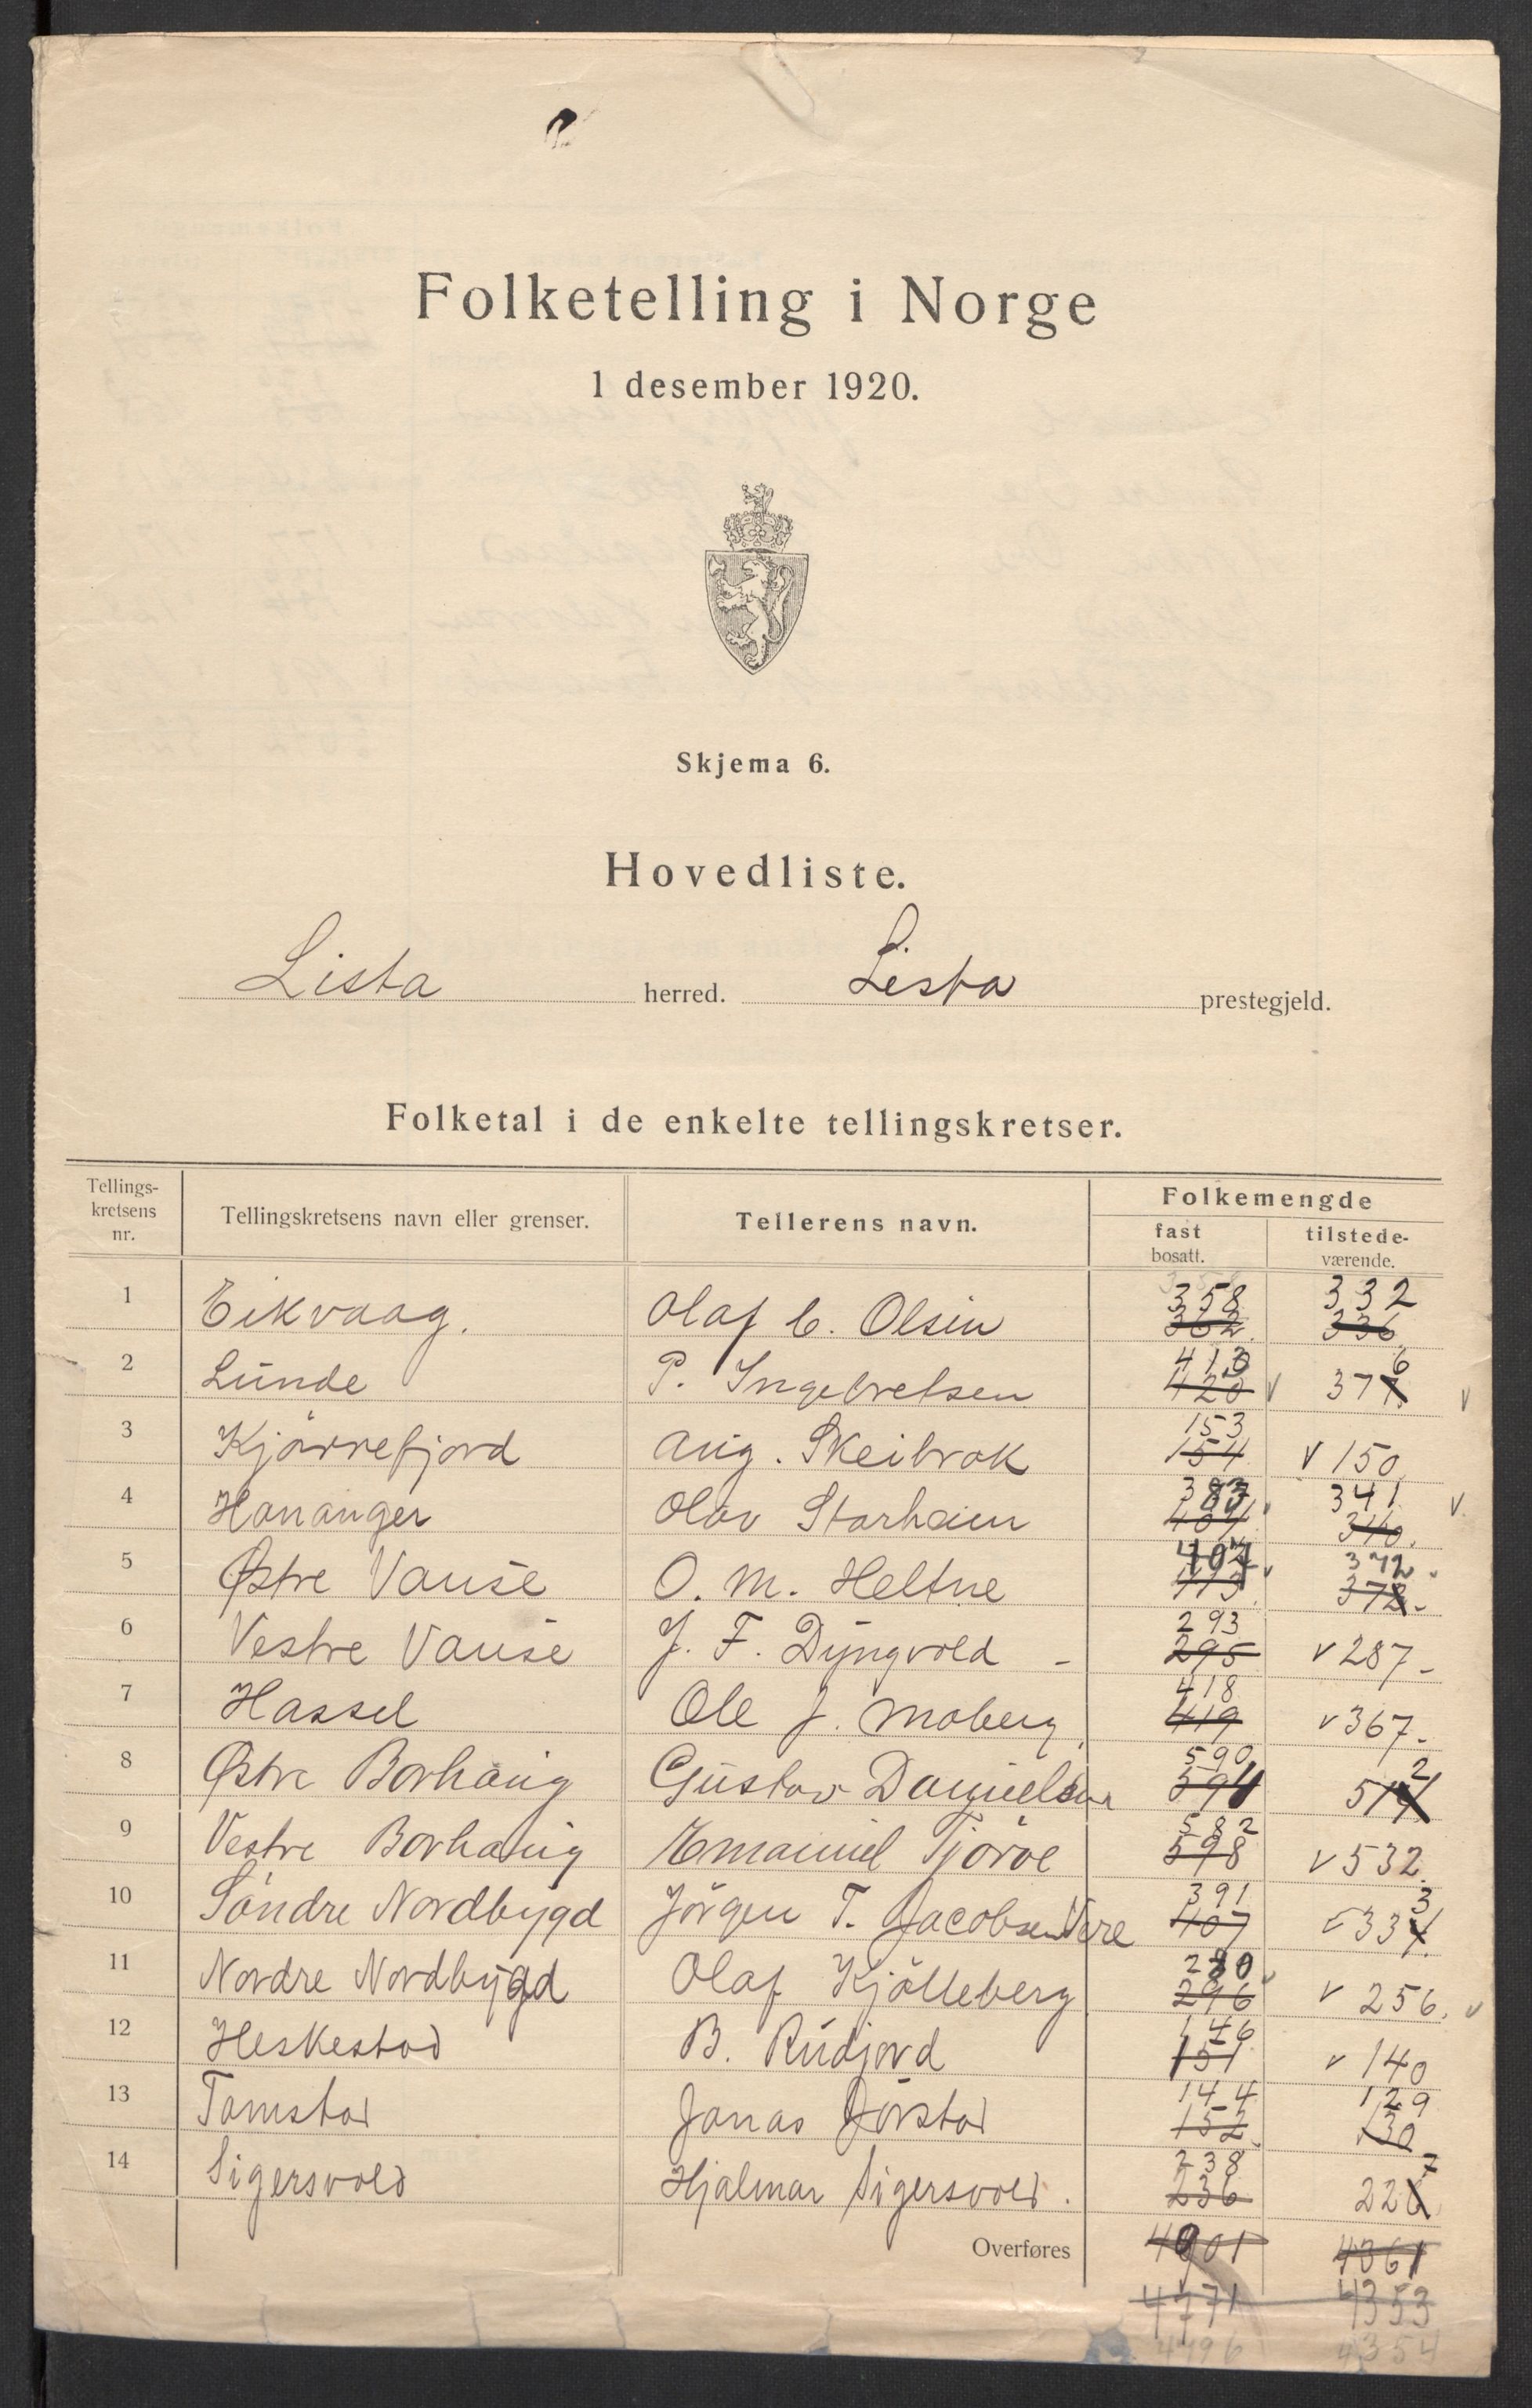 Folketelling i Norge
1 desember 1920.
Skjema 6.
Hovedliste.
Lista herred. Lista prestegjeld.
Folketal i de enkelte tellingskretser.
Tellings-kretsens nr. Tellingskretsens navn eller grenser. Tellerens navn. Folkemengde
fast bosatt. tilstede-værende.
358 332
1 Eikvaag. Olaf C. Olsen 362. 336
413 6
2 Lunde P. Ingebretsen 420 v 377. v
153
3 Kjørrefjord Aug. Skeibrok 154 v 150
383 341 v
4 Hananger Olav Storheim 404 340.
407 v 372
5 Østre Vanse O. M. Heltne 413 378
293
6 Vestre Vanse J. F. Dyngvold - 295 v 287-
418
7 Hassel Ole J. Moberg 419 v 367-
590 2
8 Østre Borhaug Gustav Danielsen 594 514
582
9 Vestre Borhaug Emanuel Tjørve 598 v 532
391 3
10 Søndre Nordbygd Jørgen T. Jacobsen Vere 407 v 334.
280
11 Nordre Nordbygd Olaf Kjølleberg 296 v 256. v
146
12 Heskestad B. Rudjord 151 v 140
144 129
13 Tomstad Jonas Jørstad 152 130
238 7
14 Sigersvold Hjalmar Sigersvold. 236 226
Overføres 4901 4361
4771 4353
4796 4354